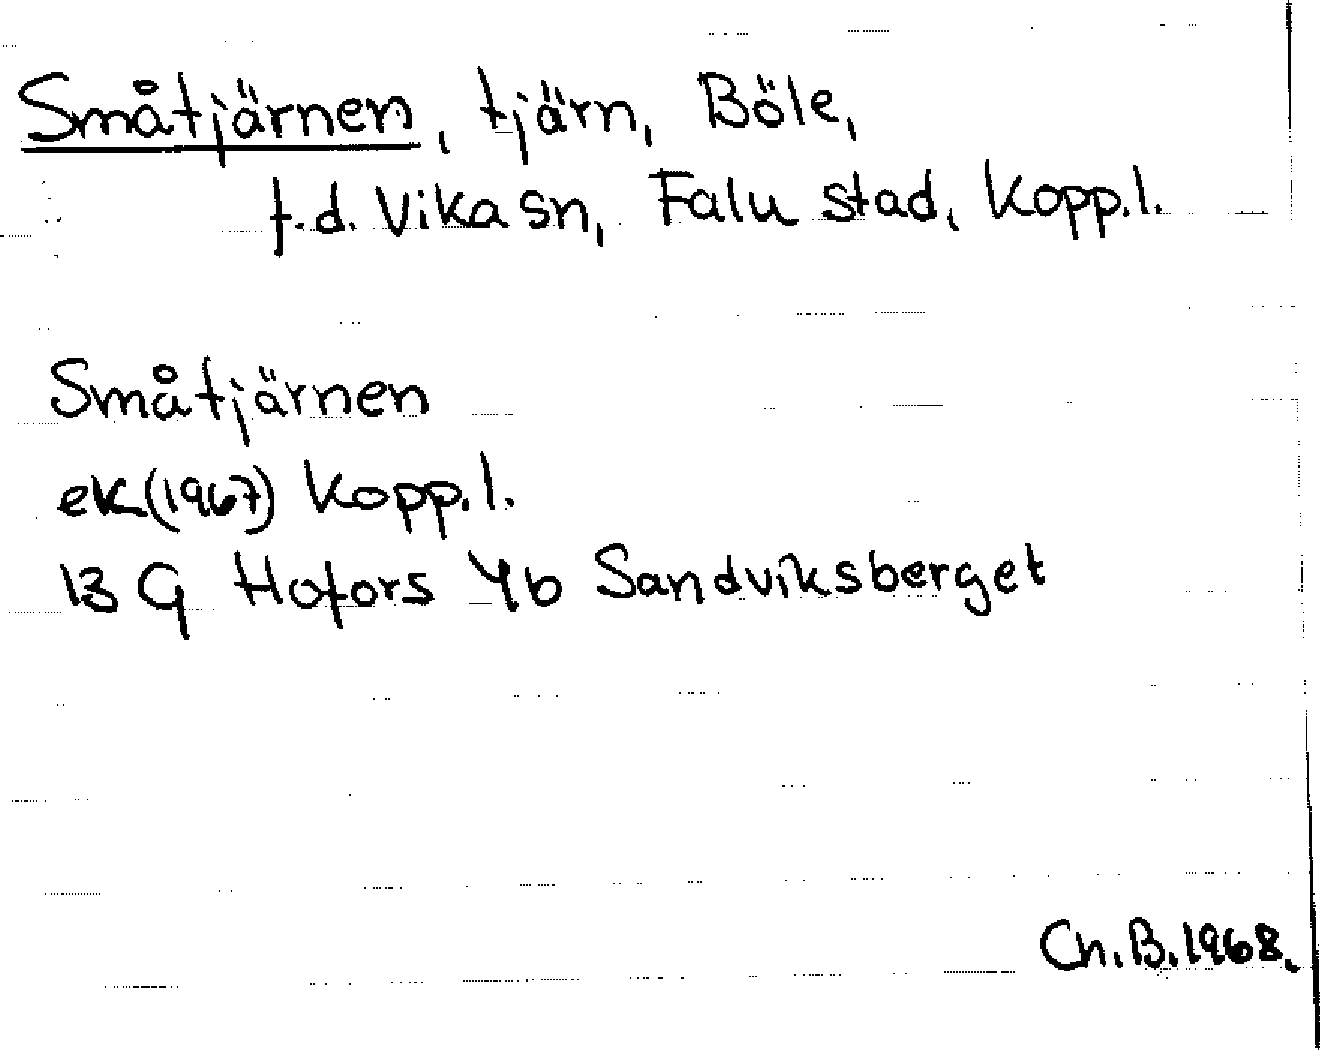 Småtjärnen, tjärn, Böle,
f.d. Vika sn, Falu stad, Kopp.l.
Småtjärnen
ek(1967) Kopp.l.
13 G Hofors 4b Sandviksberget
Ch.B.1968.